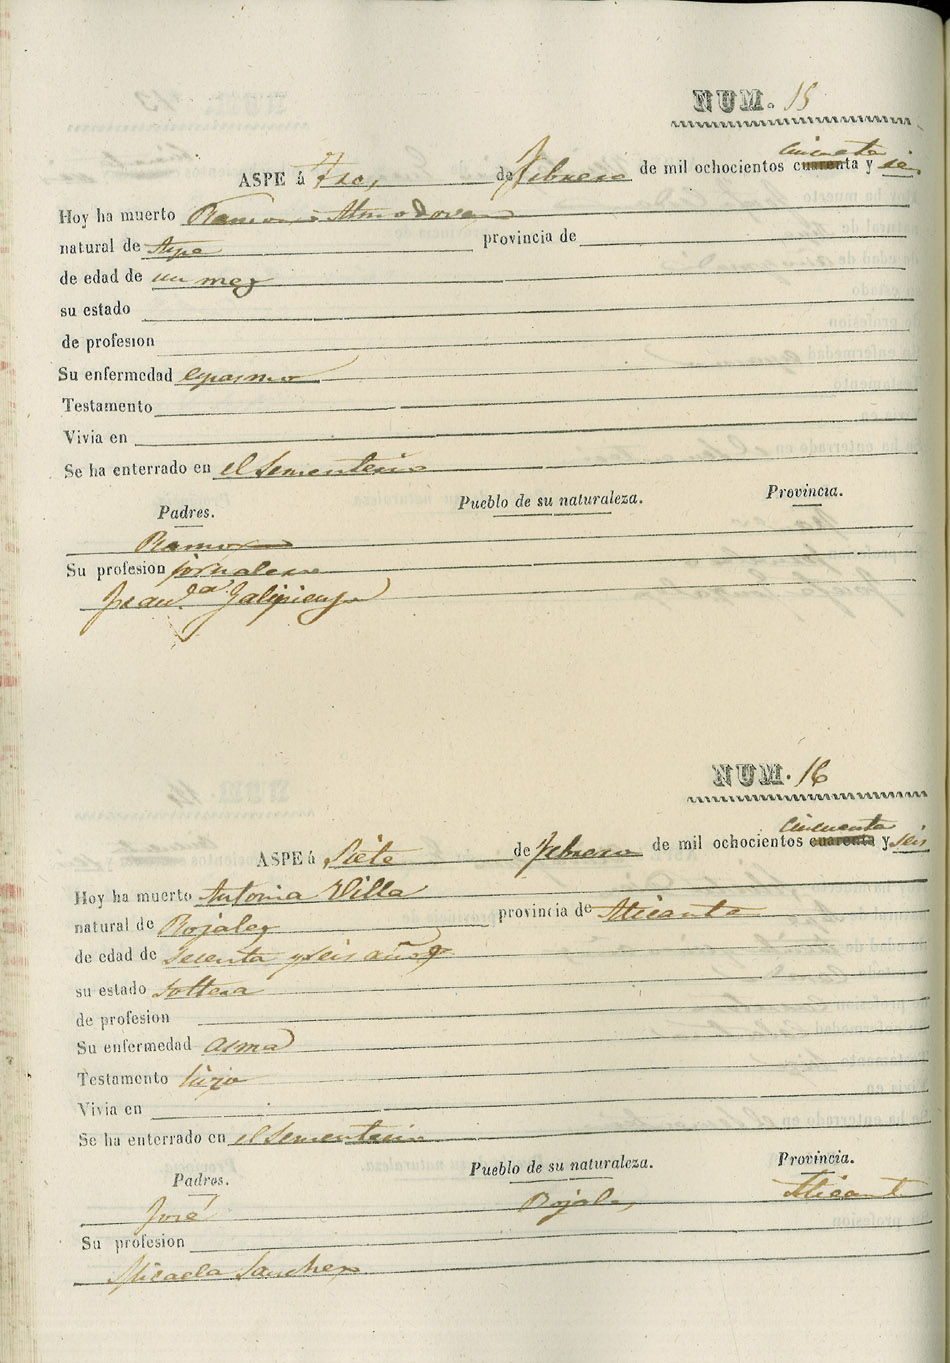 NUM. 15
cincuenta
ASPE á Tres, de febrero de mil ochocientos cuarenta y seis
Hoy ha muerto Ramon Almodovar
natural de Aspe provincia de
de edad de un mes
su estado
de profesion
Su enfermedad espasmo
Testamento
Vivia en
Se ha enterrado en el Sementerio
Padres. Pueblo de su naturaleza. Provincia.
Ramon
Su profesion jornalero
Fran.ca
NUM. 16
Cincuenta
ASPE á Siete de febrero de mil ochocientos cuarenta y seis
Hoy ha muerto Antonia Villa
natural de Rojales provincia de Alicante
de edad de sesenta y seis años
su estado soltera
de profesion
Su enfermedad asma
Testamento hizo
Vivia en
Se ha enterrado en el Sementerio
Padres. Pueblo de su naturaleza. Provincia.
José Rojales Alicante
Su profesion
Micaela Sanches